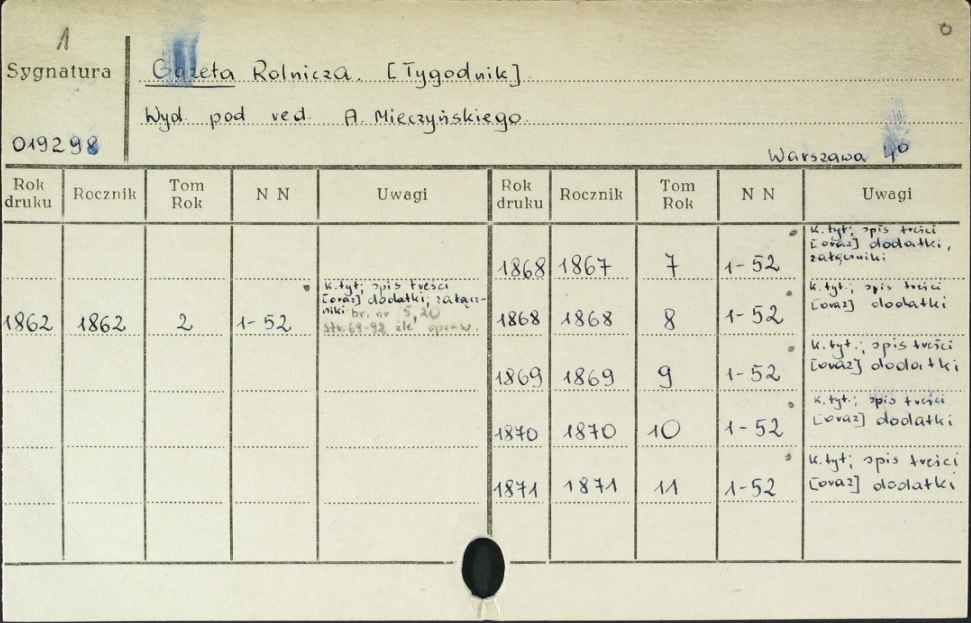 1
0
Sygnatura
Gazeta Rolnicza. [Tygodnik].
Wyd. pod red. A. Mieczyńskiego.
019298
Warszawa 4º
Rok druku Rocznik Tom Rok N N Uwagi Rok druku Rocznik Tom Rok N N Uwagi
k.tyt; spis treści
[oraz] dodatki,
załączniki
1868 1867 7 1-52
k.tyt; spis treści
[oraz] dodatki; załącz-
niki br. nr 5,20
str. 69-92 źle opraw.
1862 1862 2 1-52
k.tyt.; spis treści
[oraz] dodatki
1868 1868 8 1-52
k.tyt.; spis treści
[oraz] dodatki
1869 1869 9 1-52
k.tyt.; spis treści
[oraz] dodatki
1870 1870 10 1-52
k.tyt; spis treści
[oraz] dodatki
1871 1871 11 1-52